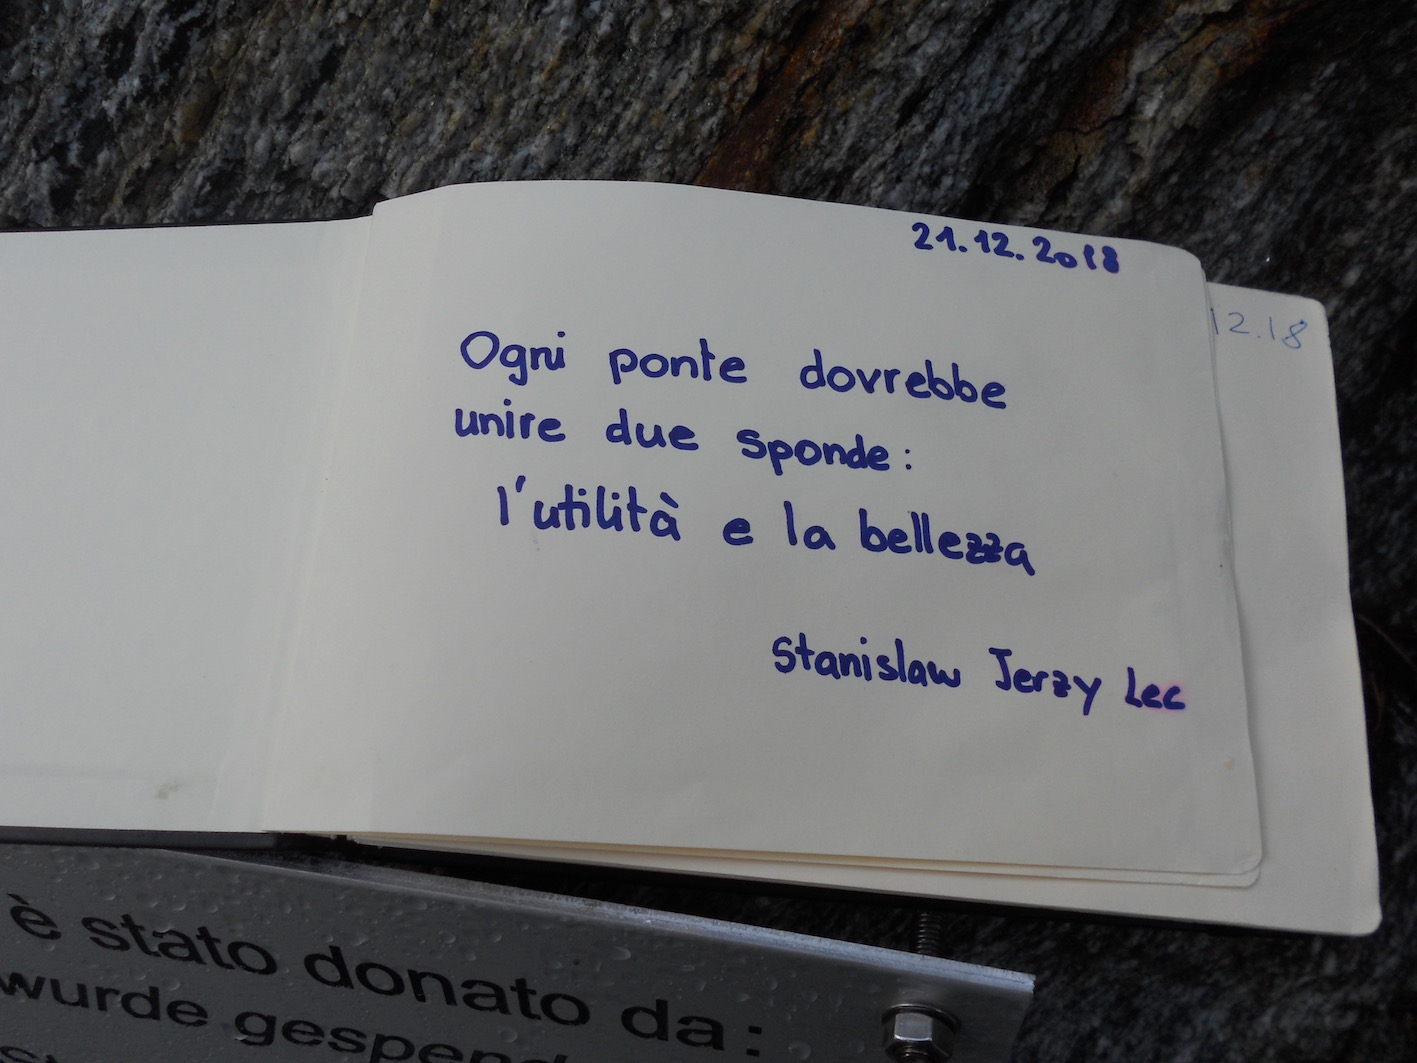 21.12.2018
12.18
Ogni ponte dovrebbe
unire due sponde:
l'utilità e la bellezza
Stanislaw Jerzy Lec
è stato donato da:
wurde